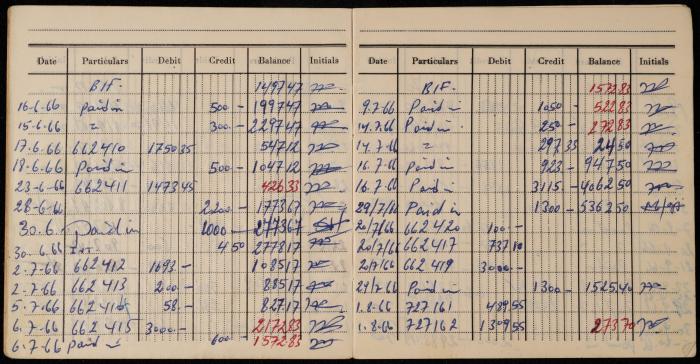 Date Particulars Debit Credit Balance Initials
B/F. 1497 47
16-6-66 paid in 500 - 1997 47
15-6-66 " 300 - 2297 47
17-6-66 662410 1750 35 547 12
18-6-66 Paid in 500 - 1047 12
23-6-66 662411 1473 45 426 33
28-6-66 2200 - 1773 67
30.6. paid in 1000 - 2773 67
30.6.66 INT. 4 50 2778 17
2.7.66 662412 1693.- 1085 17
2.7.66 662413 200 - 885 17
5.7.66 662414 58.- 827 17
6.7.66 662415 3000 - 2172 83
6.7.66 paid in 600 - 1572 83
Date Particulars Debit Credit Balance Initials
B/F. 1572 83
9.7.66 Paid in 1050 - 522 83
14.7.66 Paid in 250 - 272 83
14.7.66 " 297 33 24 50
16.7.66 Paid in 923 - 947 50
16.7.66 Paid 3115.- 4062 50
29/7/66 Paid in 1300 - 5362 50
20/7/66 662420 100 -
20/7/66 662417 737 10
20/7/66 662419 3000 -
21/7/66 Paid in 1300 - 1525.40
1.8.66 727161 489 55
1.8.66 727162 1309 55 273 70